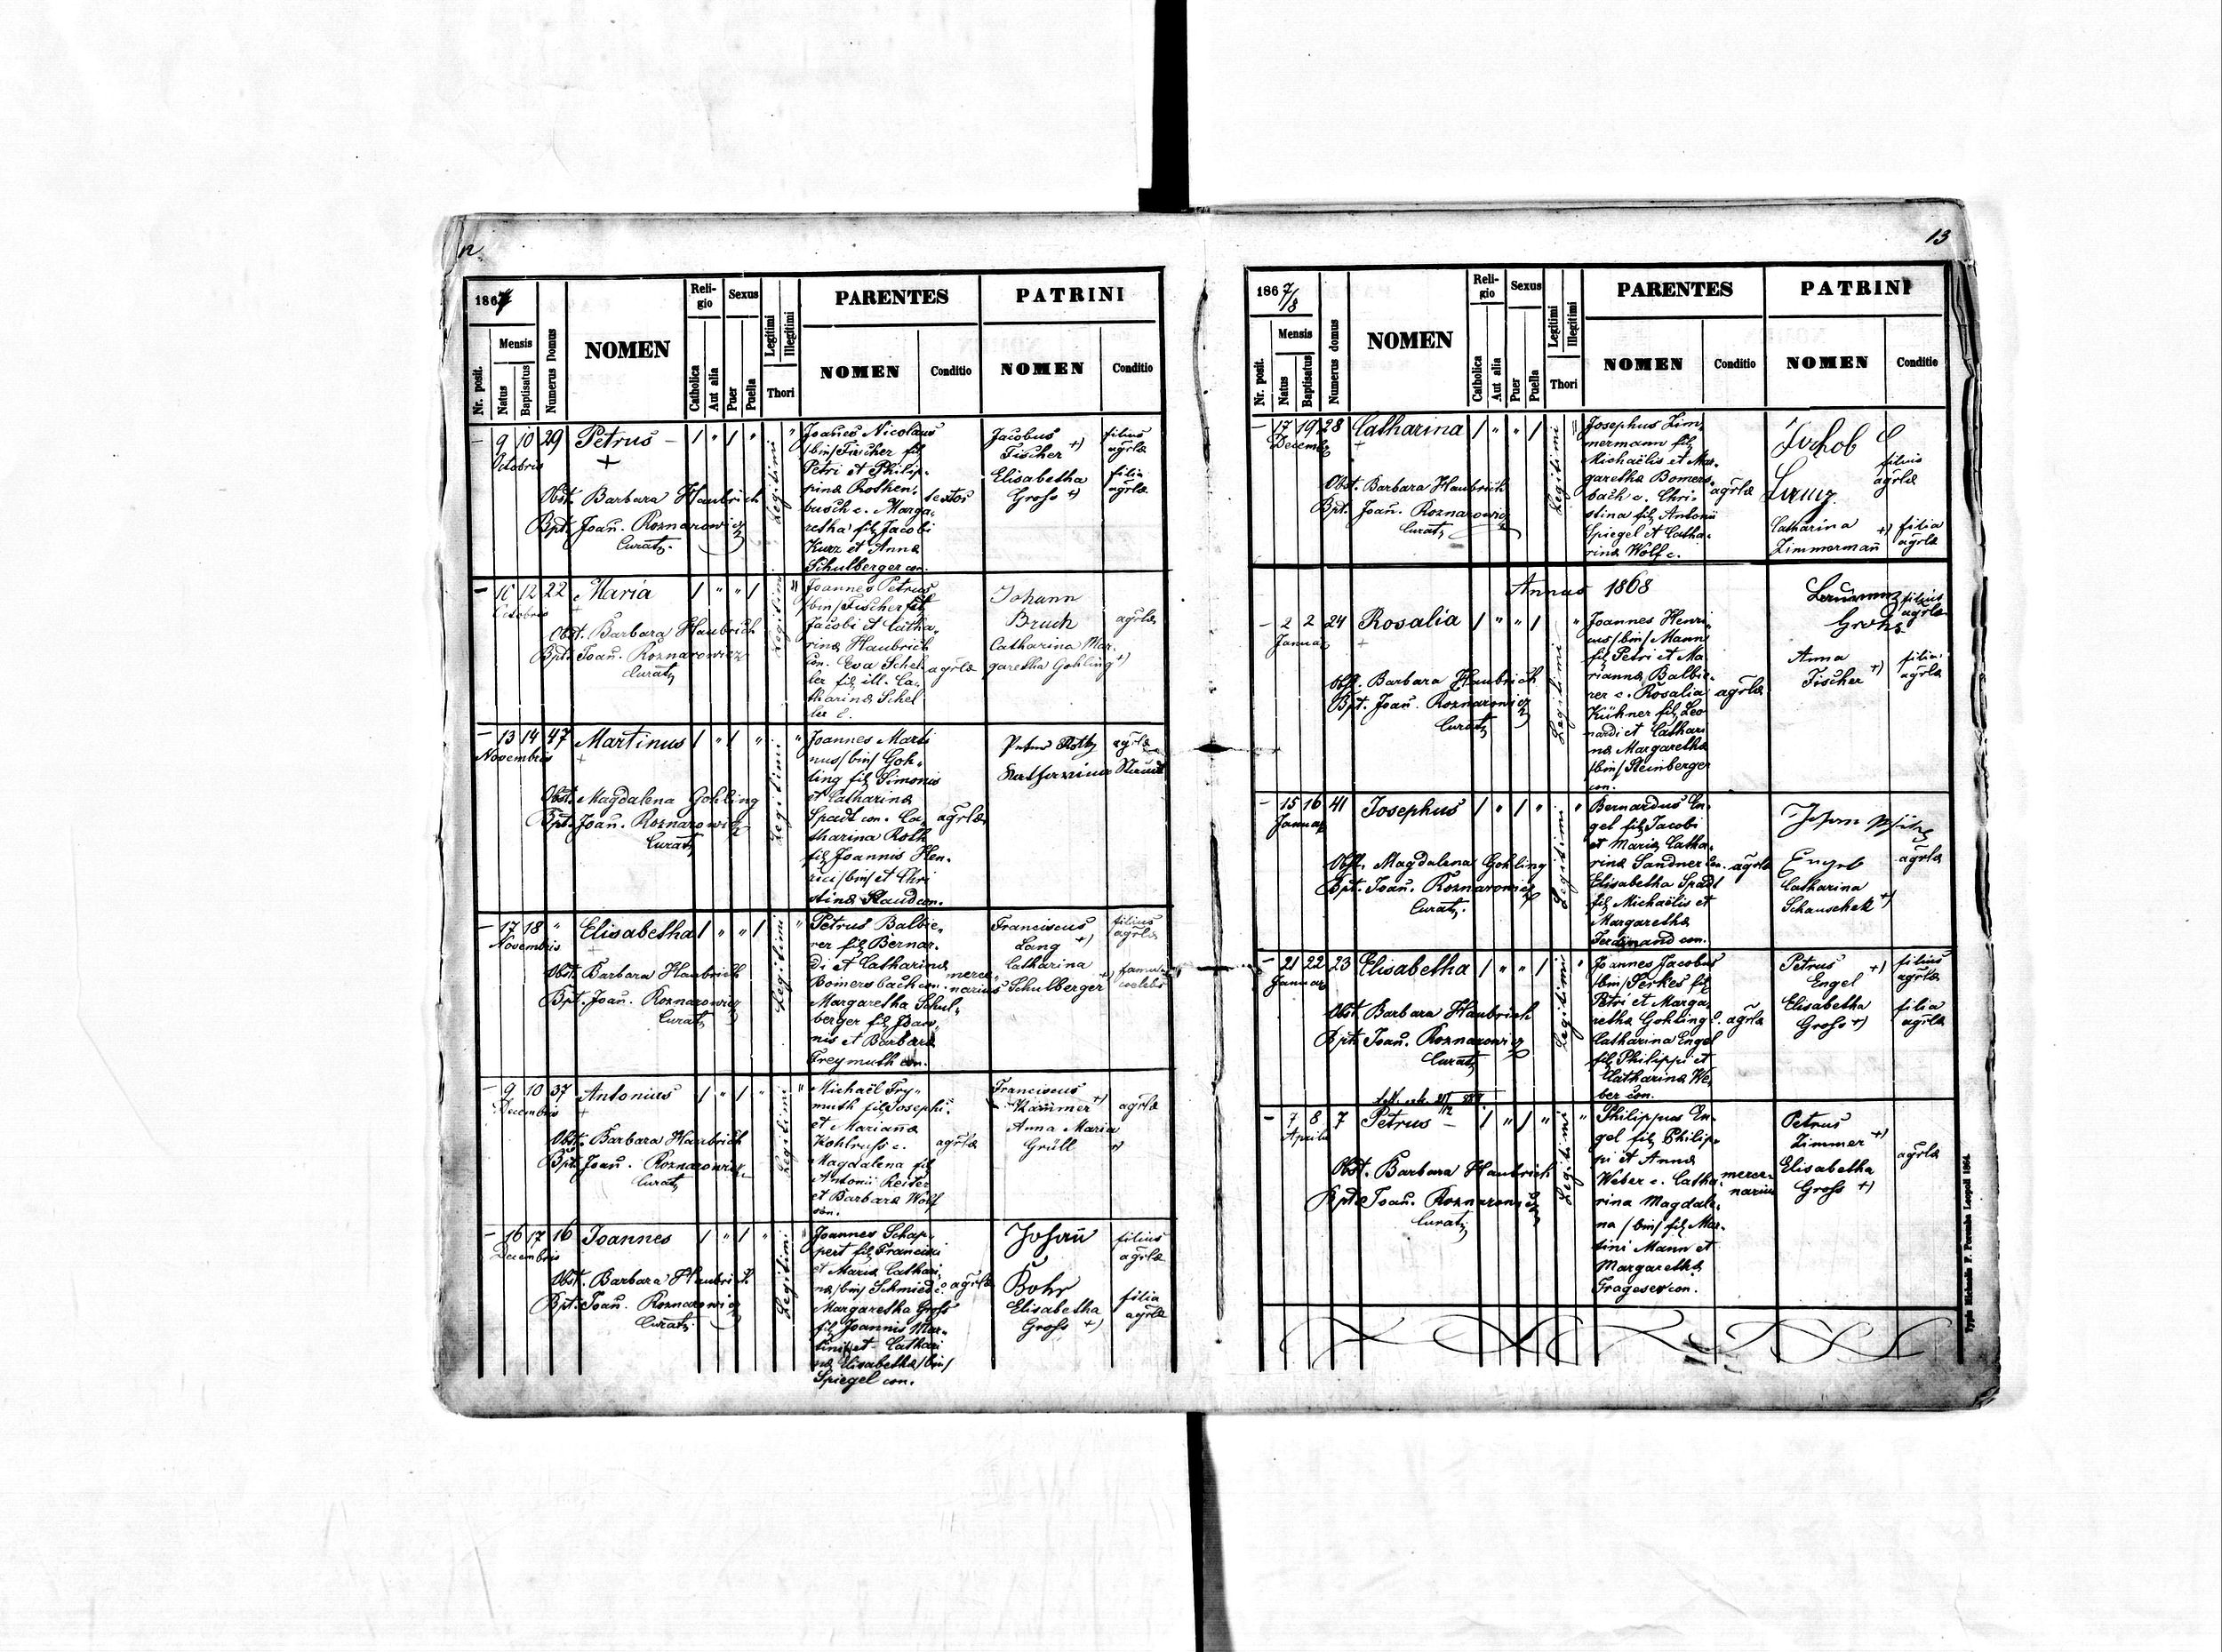 12.
1867
Nr. posit.
Mensis
Natus
Baptisatus
Numerus Domus
NOMEN
Reli-
gio
Catholica
Aut alia
Sexus
Puer
Puella
Legitimi
Illegitimi
Thori
PARENTES
NOMEN
Conditio
PATRINI
NOMEN
Conditio
– 9 10 29 Petrus – / " / "
Octobris
+
Obst. Barbara Haubrich
Bpt. Joañ. Roznarowicz
Curat.
Legitimi "
Joanes Nicolaus
/bin/ Fischer fil
Petri et Philip-
pina Rothen-
busch c. Marga-
retha fil Jacobi
Kurz et Anna
Schulberger con.
textor
Jacobus
Fischer +)
Elisabetha
Gross +)
filius
agrlæ
filia
agrlæ
– 10 12 22 Maria / " " /
Octobris
+
Obst. Barbara Haubrich
Bpt. Joañ. Roznarowicz
Curat
Legitimi "
Joannes Petrus
/bin/ Fischer fil
Jacobi et Catha-
rina Haubrich
con. Eva Schel-
ler fil ill. Ca-
tharina Schel
ler c.
agrlæ
Johann
Bruch
Catharina Mar-
garetha Gohling +)
agrlæ
– 13 14 47 Martinus / " / "
Novembris
+
Obst. Magdalena Gohling
Bpt. Joañ. Roznarowicz
Curat
Legitimi "
Joannes Marti
nus /bin/ Goh-
ling fil Simonis
et Catharina
Spadt con. Ca-
tharina Roth
fil Joannis Hen-
rici /bin/ et Chri
stina Staud con.
agrlæ
Petrus Roth
Katharina Staudt
agrlæ
– 17 18 " Elisabetha / " " /
Novembris
Obst. Barbara Haubrich
Bpt. Joañ. Roznarowicz
Curat
Legitimi "
Petrus Balbie-
rer fil Bernar-
di et Catharina
Bomersbach con.
Margaretha Schul-
berger fil Joan-
nis et Barbara
Freymuth con.
merce-
narius
Franciscus
Lang +)
Catharina
Schulberger +)
filius
agrlæ
– 9 10 37 Antonius / " / "
Decembris
+
Obst. Barbara Haubrich
Bpt. Joañ. Roznarowicz
Curat
Legitimi "
Michaël Fry-
muth fil Josephi
et Mariana
Kohlruss c.
Magdalena fil
Antonii Reiter
et Barbara Wolf
con.
agrlæ
Franciscus
Kammer +)
Anna Maria
Grüll +)
agrlæ
– 16 17 16 Joannes / " / "
Decembris
Obst. Barbara Haubrich
Bpt. Joañ. Roznarowicz
Curat
Legitimi "
Joannes Schap-
pert fil Francisci
et Maria Cathari-
na /bin/ Schmied c.
Margaretha Gross
fil Joannis Mar-
tini et Cathari
na Elisabetha /bin/
Spiegel con.
agrlæ
Johañ
Bohr
Elisabetha
Gross +)
filius
agrlæ
filia
agrlæ
13
1867/8
Nr. posit.
Mensis
Natus
Baptisatus
Numerus domus
NOMEN
Reli-
gio
Catholica
Aut alia
Sexus
Puer
Puella
Legitimi
Illegitimi
Thori
PARENTES
NOMEN
Conditio
PATRINI
NOMEN
Conditio
– 17 19 28 Catharina / " " /
Decemb
+
Obst. Barbara Haubrich
Bpt. Joañ. Roznarowicz
Curat
Legitimi "
Josephus Zim-
mermann fil
Michaëlis et Mar-
garetha Bomers-
bach c. Chri-
stina fil Antonii
Spiegel et Catha-
rina Wolf c.
agrlæ
Jackob
Catharina +)
Zimmermañ
filius
agrlæ
filia
agrlæ
Annus 1868
– 2 2 24 Rosalia / " " /
Januar
+
Obst. Barbara Haubrich
Bpt. Joañ. Roznarowicz
Curat
Legitimi "
Joannes Henri-
cus /bin/ Mann
fil Petri et Ma
rianna Balbie-
rer c. Rosalia
Kühner fil Leo
nardi et Cathari
na Margaretha
/bin/ Steinberger
con.
agrlæ
Grohs
Anna
Fischer +)
filius
agrlæ
filia
agrlæ
– 15 16 41 Josephus / " / "
Januar
Obst. Magdalena Gohling
Bpt. Joañ. Roznarowicz
Curat.
Legitimi "
Bernardus En-
gel fil Jacobi
et Maria Catha-
rina Sandner con.
Elisabetha Spadt
fil Michaëlis et
Margaretha
Ferdinand con.
agrlæ
Johan
Engel
Catharina
Schauschek +)
agrlæ
– 21 22 23 Elisabetha / " " /
Januar
Obst. Barbara Haubrich
Bpt. Joañ. Roznarowicz
Curat
Legitimi "
Joannes Jacobus
/bin/ Serkes fil
Petri et Marga-
retha Gohling c.
Catharina Engel
fil Philippi et
Catharina We-
ber con.
agrlæ
Petrus
Engel +)
Elisabetha
Gross +)
filius
agrlæ
filia
agrlæ
– 7 8 7 Petrus – / " / "
Aprilis
Obst. Barbara Haubrich
Bpt. Joañ. Roznarowicz
Curat
Legitimi "
Philippus En-
gel fil Philip-
pi et Anna
Weber c. Catha-
rina Magdale-
na /bin/ fil Mar-
tini Mann et
Margaretha
Frageser con.
merce-
narius
Petrus
Zimmer +)
Elisabetha
Gross +)
agrlæ
Typis Michaelis F. Poremba Leopoli 1864.